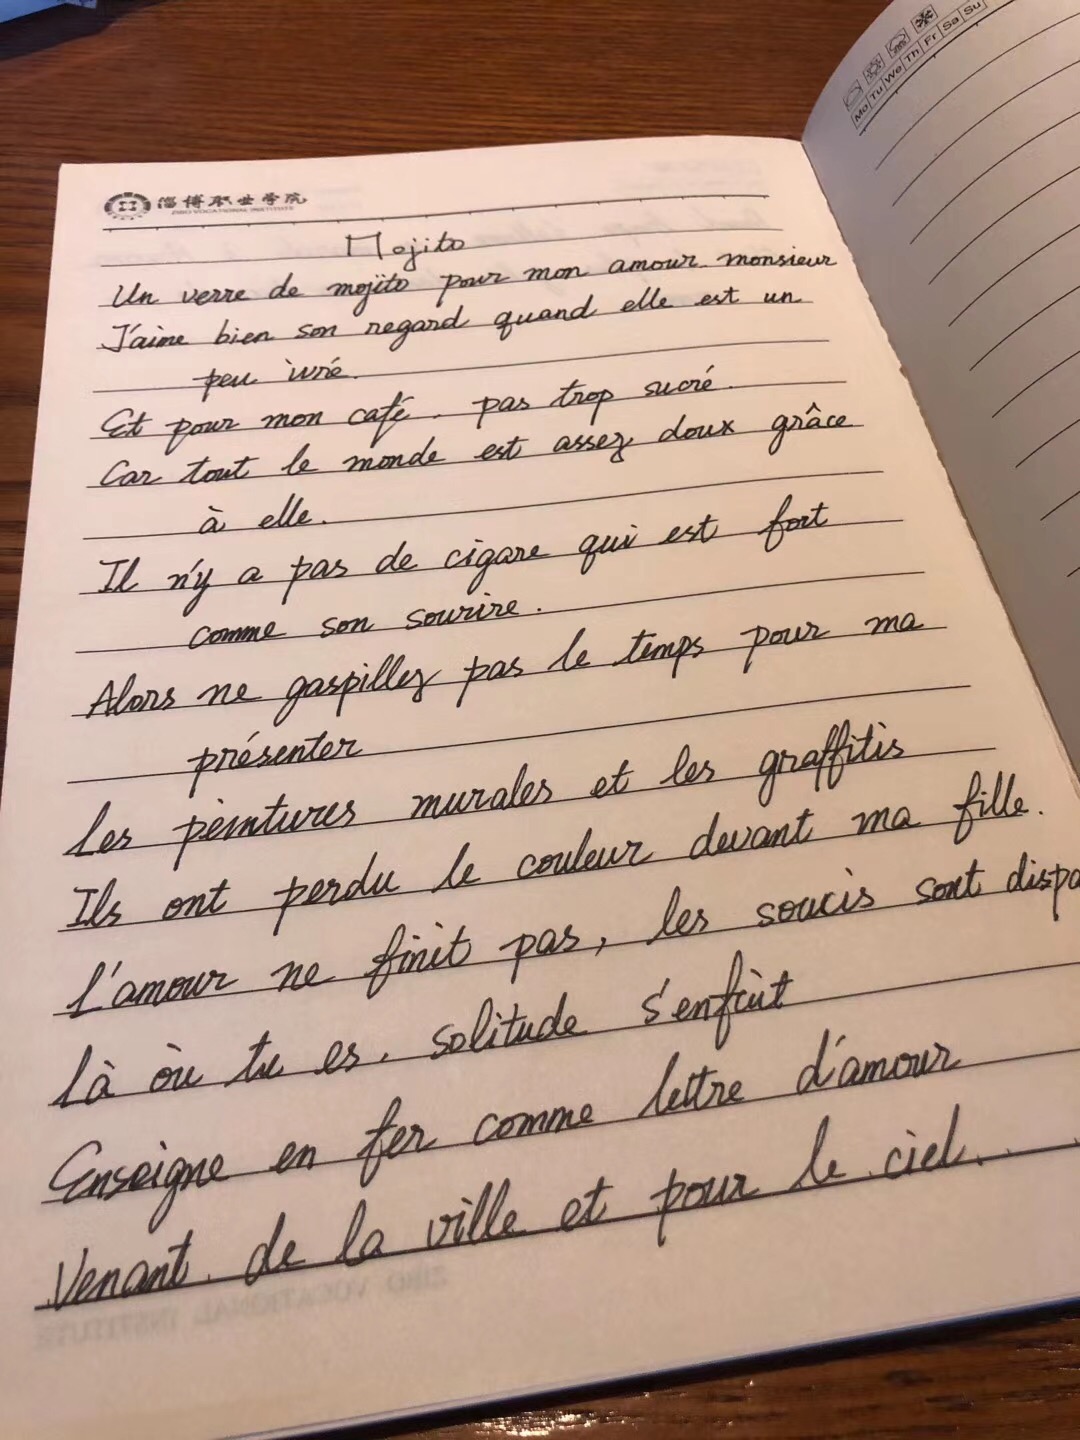 淄博职业学院
ZIBO VOCATIONAL INSTITUTE
Mojito
Un verre de mojito pour mon amour monsieur
J'aime bien son regard quand elle est un
peu ivré.
Et pour mon café. pas trop sucré.
Car tout le monde est assez doux grâce
à elle.
Il n'y a pas de cigare qui est fort
comme son sourire.
Alors ne gaspillez pas le temps pour ma
présenter
Les peintures murales et les graffitis
Ils ont perdu le couleur devant ma fille.
L'amour ne finit pas, les soucis sont dispa
Là où tu es. solitude s'enfuit
Enseigne en fer comme lettre d'amour
Venant. de la ville et pour le ciel.
ZIBO VOCATIONAL INSTITUTE
Mo Tu We Th Fr Sa Su